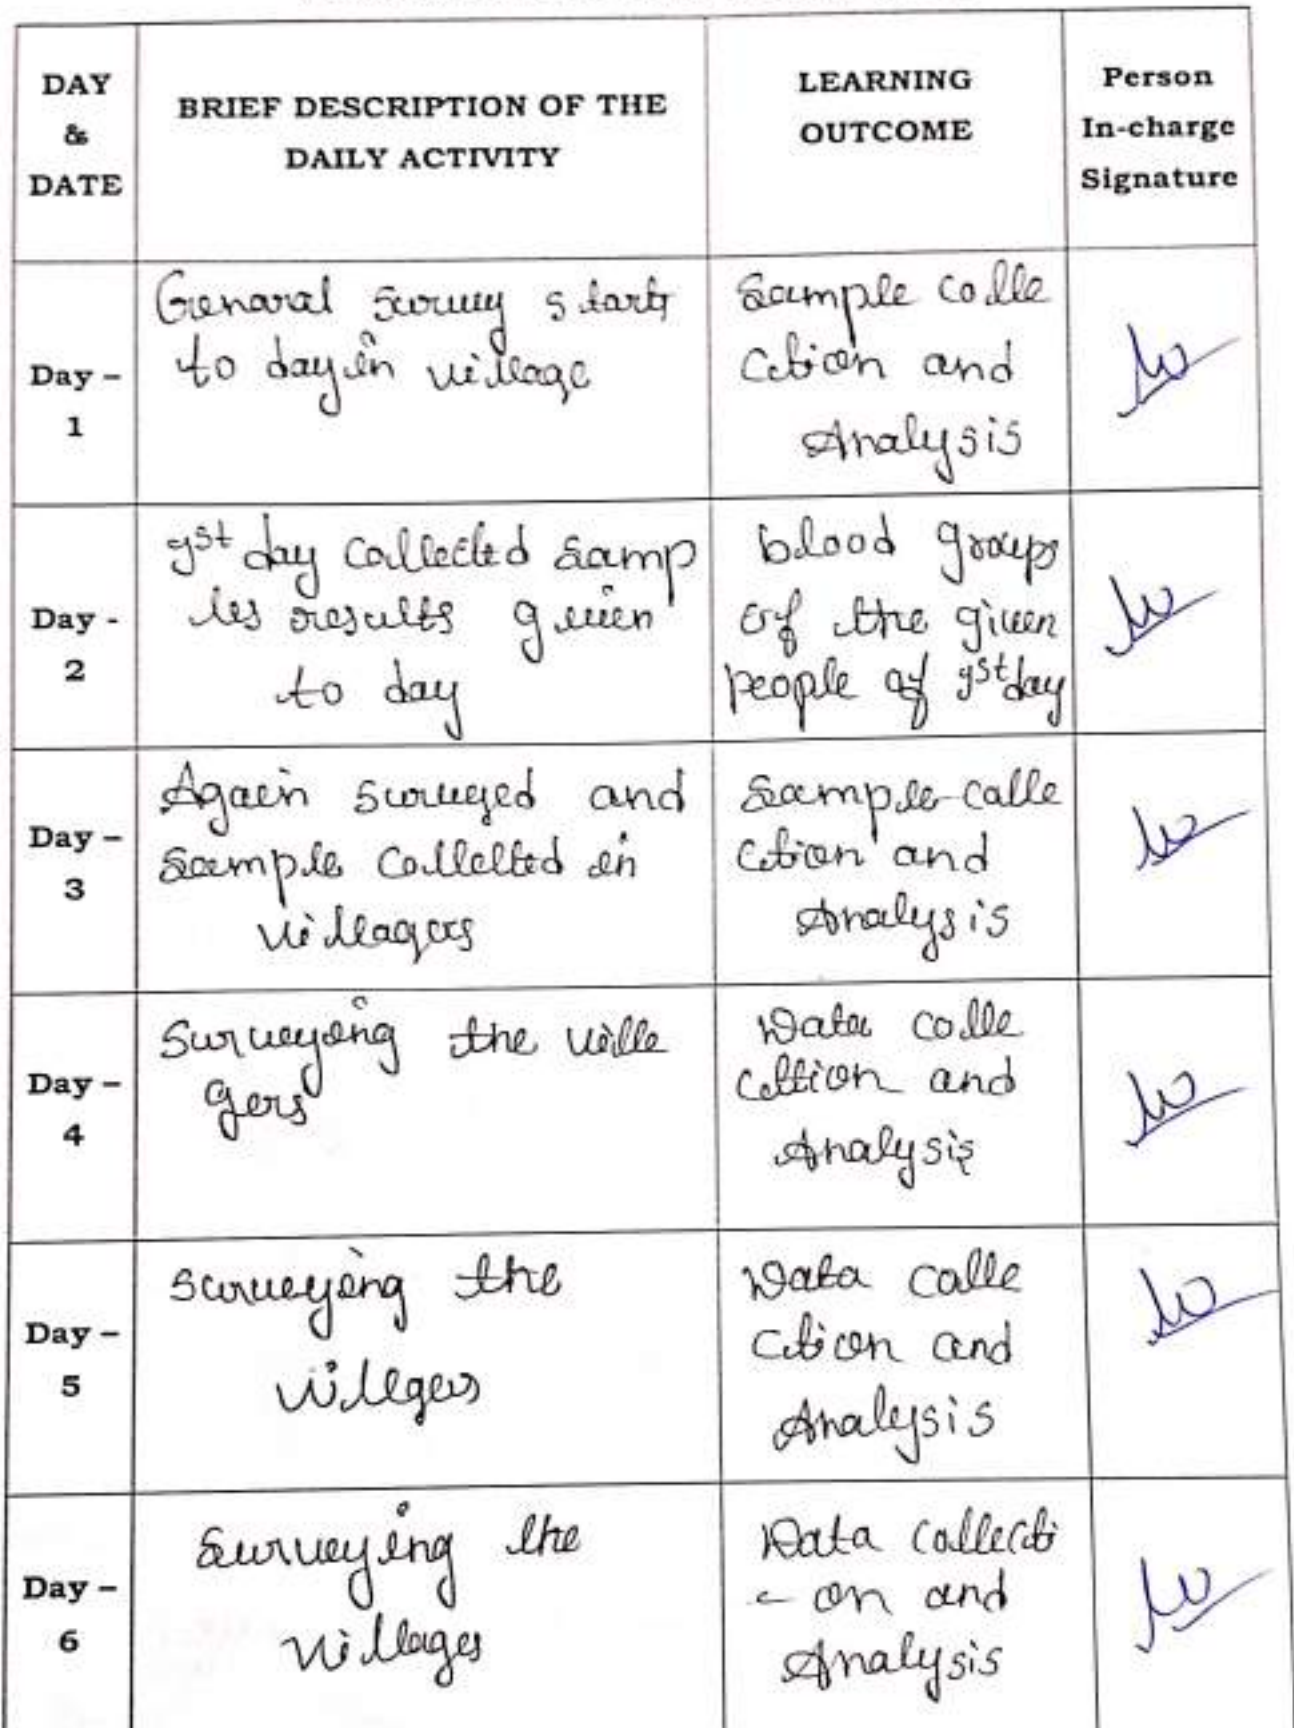 DAY
&
DATE
BRIEF DESCRIPTION OF THE
DAILY ACTIVITY
LEARNING
OUTCOME
Person
In-charge
Signature
Day –
1
Genaral survey starts
to day in village
Sample colle
ction and
Analysis
Day -
2
1st day collected samp
les results given
to day
blood groups
of the given
people of 1st day
Day –
3
Again surveyed and
sample collected in
villagers
Sample colle
ction and
Analysis
Day –
4
Surveying the ville
gers
Data colle
ction and
Analysis
Day –
5
surveying the
villgers
Data colle
ction and
Analysis
Day –
6
Surveying the
villages
Data collecti
- on and
Analysis